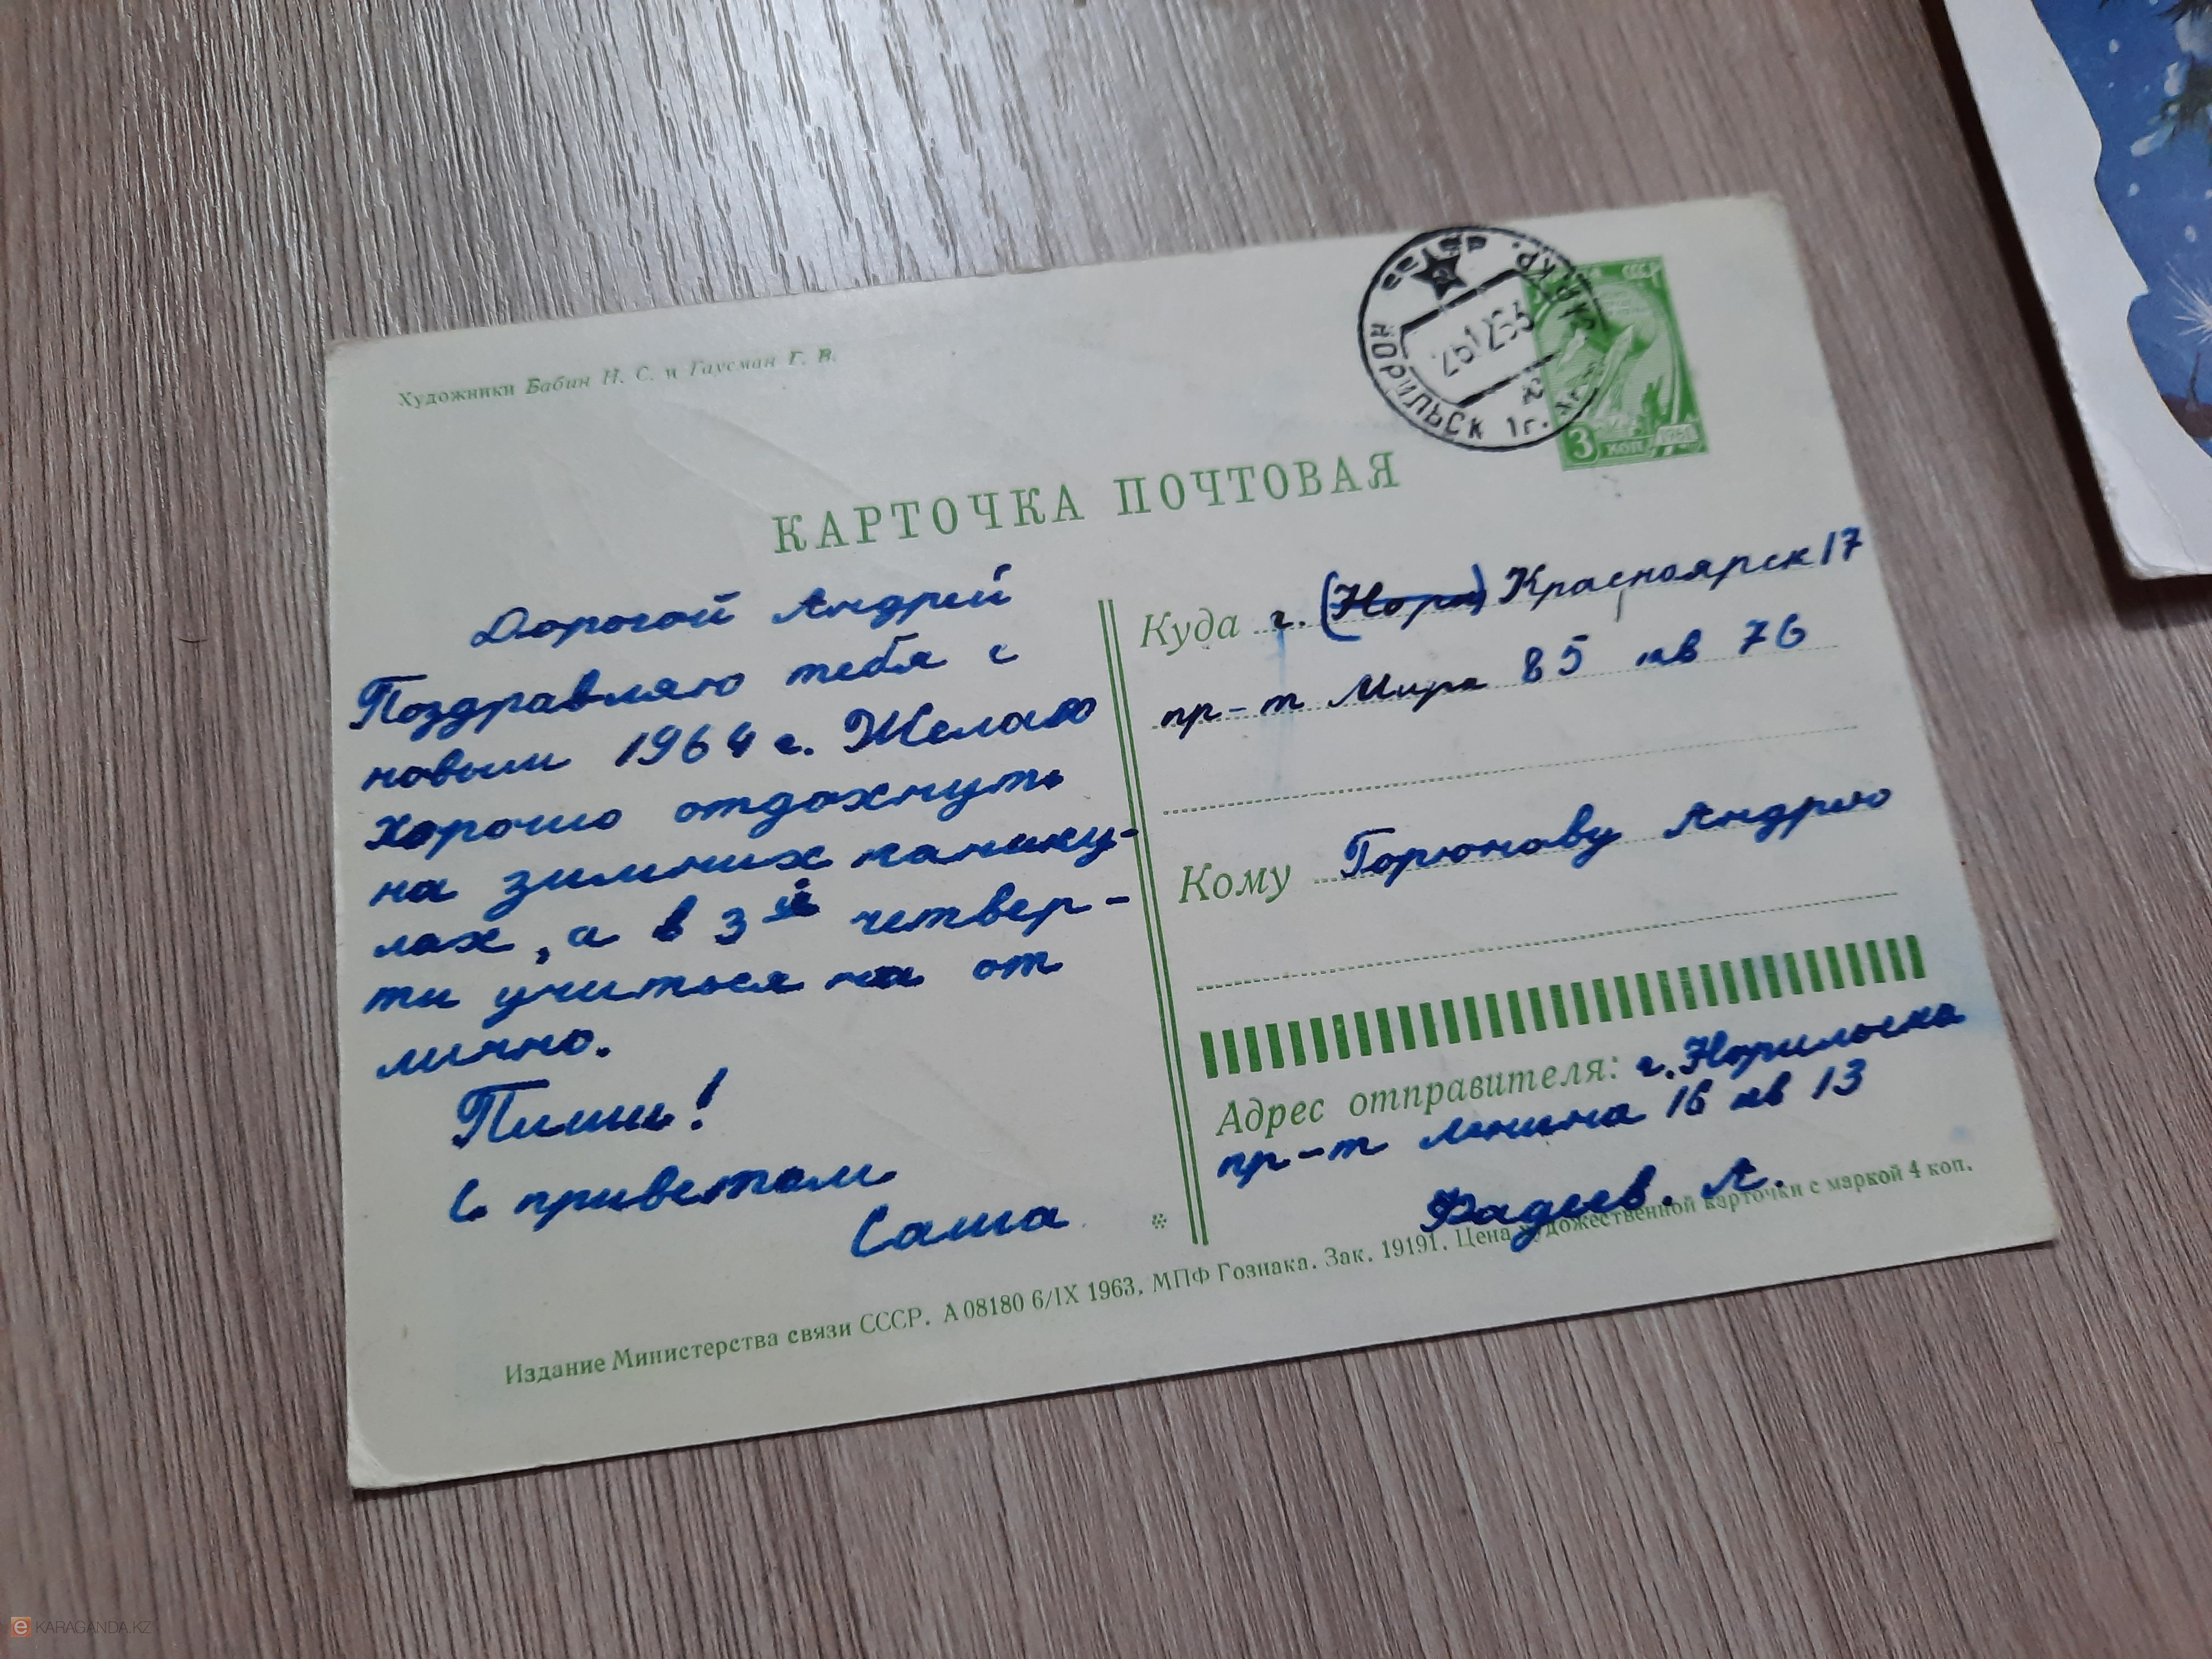 Художники Бабин Н. С. и Гаусман Г. В.
НОРИЛЬСК 1 г.
СССР
3 КОП 1961
КАРТОЧКА ПОЧТОВАЯ
Дорогой Андрей
Поздравляю тебя с
новым 1964 г. Желаю
хорошо отдохнуть
на зимних канику-
лах, а в 3 й четвер-
ти учиться на от
лично.
Пиши!
С приветом
Саша
Куда г. (Нори) Красноярск 17
пр-т Мира 85 кв 76
Кому Горюнову Андрею
Адрес отправителя: г. Норильска
пр-т Ленина 16 кв 13
Фадеев. А.
Издание Министерства связи СССР. А 08180 6/IX 1963. МПФ Гознака. Зак. 19191. Цена художественной карточки с маркой 4 коп.
e KARAGANDA.KZ